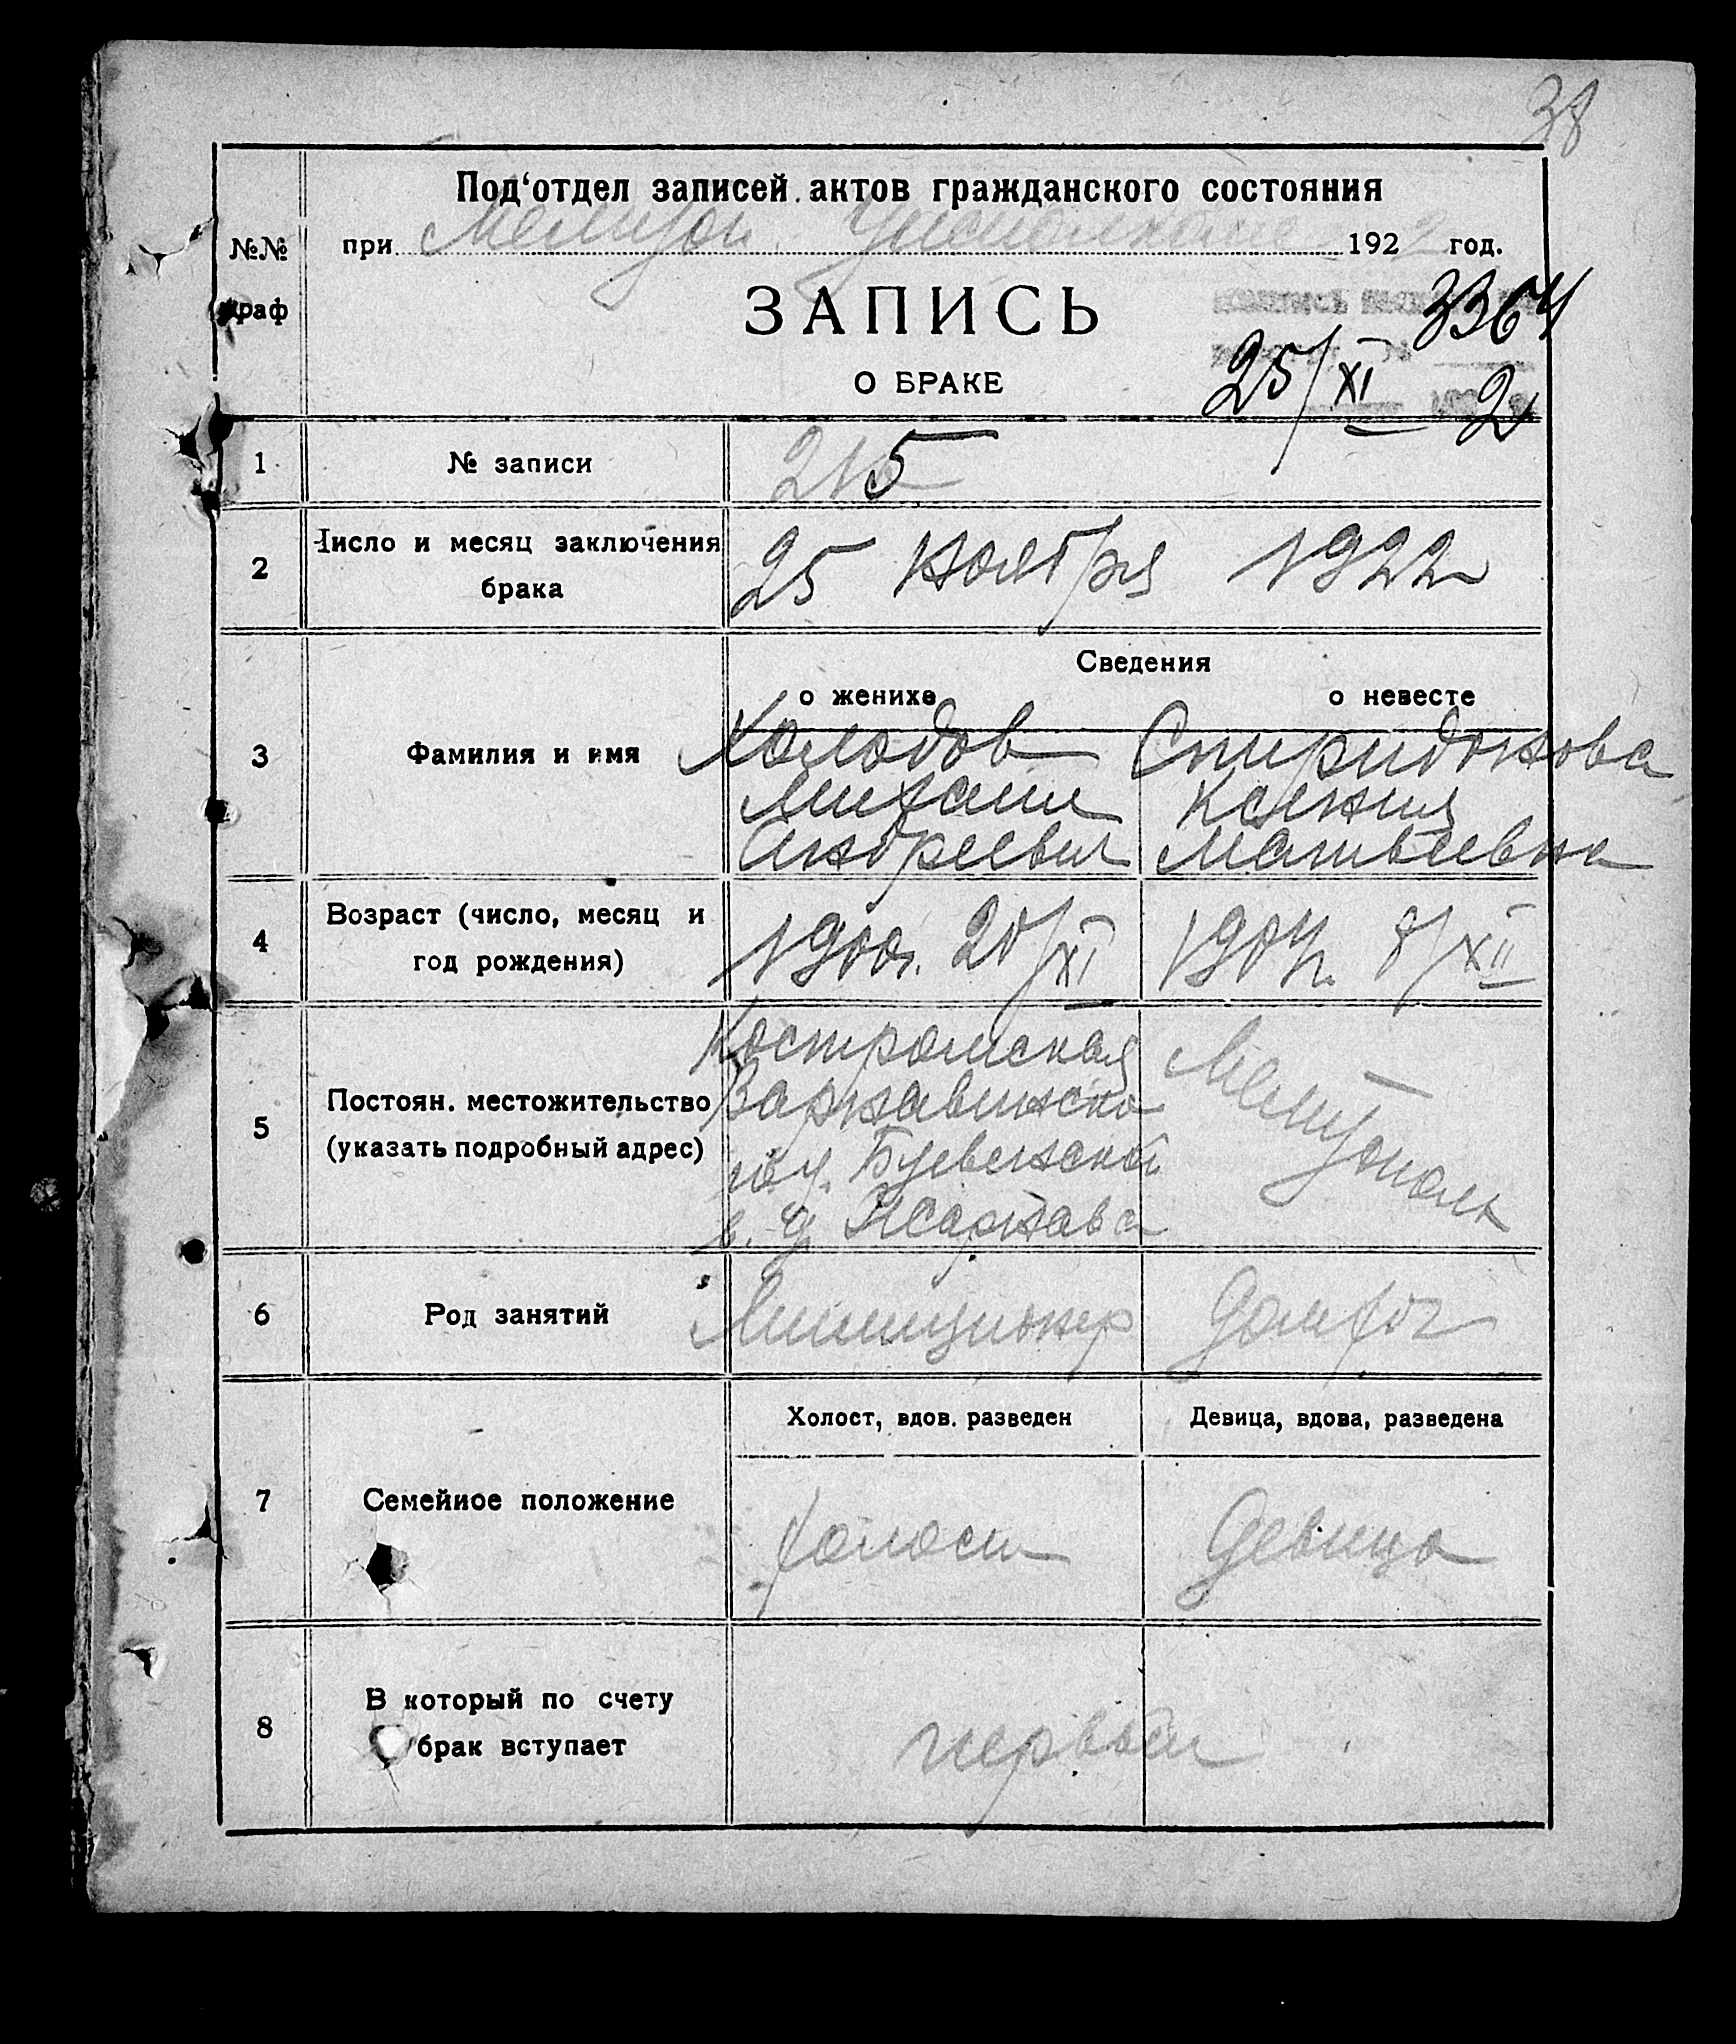 38
Под‘отдел записей актов гражданского состояния
№№ граф
при Мелитоп. Уисполкоме 1922 год.
ЗАПИСЬ
3364
О БРАКЕ
25/XI 2
1 № записи 215
2 Число и месяц заключения брака 25 ноября 1922
Сведения
о женихе о невесте
3 Фамилия и имя
Холодов Спиридонова
Михаил Ксения
Андреевич Матвеевна
4 Возраст (число, месяц и год рождения) 1900г. 20/XI 1904г. 8/XII
5 Постоян. местожительство (указать подробный адрес)
Костромская Мелитополь
Варнавинско
го у.
в. д.
6 Род занятий Милиционер Домраб
Холост, вдов. разведен Девица, вдова, разведена
7 Семейное положение холост Девица
8 В который по счету брак вступает первый